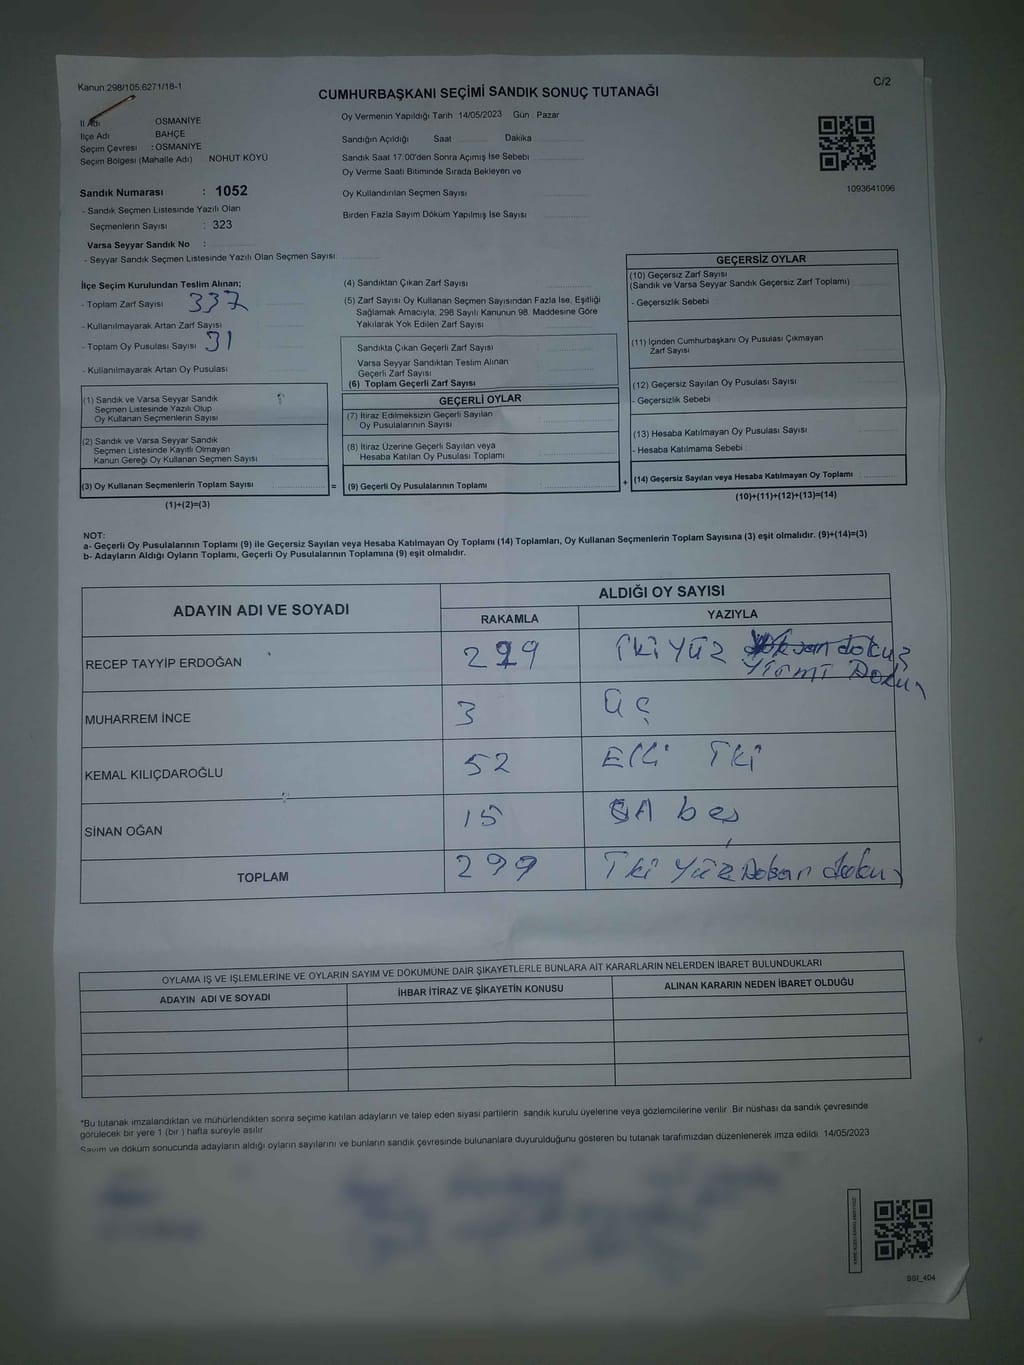 Kanun 298/105 6271/18-1
C/2
CUMHURBAŞKANI SEÇİMİ SANDIK SONUÇ TUTANAĞI
İl Adı OSMANİYE
İlçe Adı BAHÇE
Seçim Çevresi : OSMANİYE
Seçim Bölgesi (Mahalle Adı) NOHUT KÖYÜ
Sandık Numarası : 1052
- Sandık Seçmen Listesinde Yazılı Olan
Seçmenlerin Sayısı : 323
Varsa Seyyar Sandık No :
- Seyyar Sandık Seçmen Listesinde Yazılı Olan Seçmen Sayısı
Oy Vermenin Yapıldığı Tarih 14/05/2023 Gün Pazar
Sandığın Açıldığı Saat Dakika
Sandık Saat 17:00'den Sonra Açımış İse Sebebi
Oy Verme Saati Bitiminde Sırada Bekleyen ve
Oy Kullandırılan Seçmen Sayısı
Birden Fazla Sayım Döküm Yapılmış İse Sayısı
1093641096
İlçe Seçim Kurulundan Teslim Alınan;
- Toplam Zarf Sayısı 337
- Kullanılmayarak Artan Zarf Sayısı
- Toplam Oy Pusulası Sayısı 31
- Kullanılmayarak Artan Oy Pusulası
(1) Sandık ve Varsa Seyyar Sandık
Seçmen Listesinde Yazılı Olup
Oy Kullanan Seçmenlerin Sayısı
(2) Sandık ve Varsa Seyyar Sandık
Seçmen Listesinde Kayıtlı Olmayan
Kanun Gereği Oy Kullanan Seçmen Sayısı
(3) Oy Kullanan Seçmenlerin Toplam Sayısı
(1)+(2)=(3)
(4) Sandıktan Çıkan Zarf Sayısı
(5) Zarf Sayısı Oy Kullanan Seçmen Sayısından Fazla İse, Eşitliği
Sağlamak Amacıyla, 298 Sayılı Kanunun 98. Maddesine Göre
Yakılarak Yok Edilen Zarf Sayısı
Sandıkta Çıkan Geçerli Zarf Sayısı
Varsa Seyyar Sandıktan Teslim Alınan
Geçerli Zarf Sayısı
(6) Toplam Geçerli Zarf Sayısı
GEÇERLİ OYLAR
(7) İtiraz Edilmeksizin Geçerli Sayılan
Oy Pusulalarının Sayısı
(8) İtiraz Üzerine Geçerli Sayılan veya
Hesaba Katılan Oy Pusulası Toplamı
= (9) Geçerli Oy Pusulalarının Toplamı
GEÇERSİZ OYLAR
(10) Geçersiz Zarf Sayısı
(Sandık ve Varsa Seyyar Sandık Geçersiz Zarf Toplamı)
- Geçersizlik Sebebi
(11) İçinden Cumhurbaşkanı Oy Pusulası Çıkmayan
Zarf Sayısı
(12) Geçersiz Sayılan Oy Pusulası Sayısı
- Geçersizlik Sebebi
(13) Hesaba Katılmayan Oy Pusulası Sayısı
- Hesaba Katılmama Sebebi
+ (14) Geçersiz Sayılan veya Hesaba Katılmayan Oy Toplamı
(10)+(11)+(12)+(13)=(14)
NOT:
a- Geçerli Oy Pusulalarının Toplamı (9) ile Geçersiz Sayılan veya Hesaba Katılmayan Oy Toplamı (14) Toplamları, Oy Kullanan Seçmenlerin Toplam Sayısına (3) eşit olmalıdır. (9)+(14)=(3)
b- Adayların Aldığı Oyların Toplamı, Geçerli Oy Pusulalarının Toplamına (9) eşit olmalıdır.
ADAYIN ADI VE SOYADI ALDIĞI OY SAYISI
RAKAMLA YAZIYLA
RECEP TAYYİP ERDOĞAN 229 İki Yüz doksan dokuz
Yirmi Dokuz
MUHARREM İNCE 3 Üç
KEMAL KILIÇDAROĞLU 52 Elli İki
SİNAN OĞAN 15 beş
TOPLAM 299 İki Yüz Doksan dokuz
OYLAMA İŞ VE İŞLEMLERİNE VE OYLARIN SAYIM VE DÖKÜMÜNE DAİR ŞİKAYETLERLE BUNLARA AİT KARARLARIN NELERDEN İBARET BULUNDUKLARI
ADAYIN ADI VE SOYADI İHBAR İTİRAZ VE ŞİKAYETİN KONUSU ALINAN KARARIN NEDEN İBARET OLDUĞU
*Bu tutanak imzalandıktan ve mühürlendikten sonra seçime katılan adayların ve talep eden siyasi partilerin sandık kurulu üyelerine veya gözlemcilerine verilir. Bir nüshası da sandık çevresinde
görülecek bir yere 1 (bir ) hafta süreyle asılır.
Sayım ve döküm sonucunda adayların aldığı oyların sayılarını ve bunların sandık çevresinde bulunanlara duyurulduğunu gösteren bu tutanak tarafımızdan düzenlenerek imza edildi. 14/05/2023
SSI_404